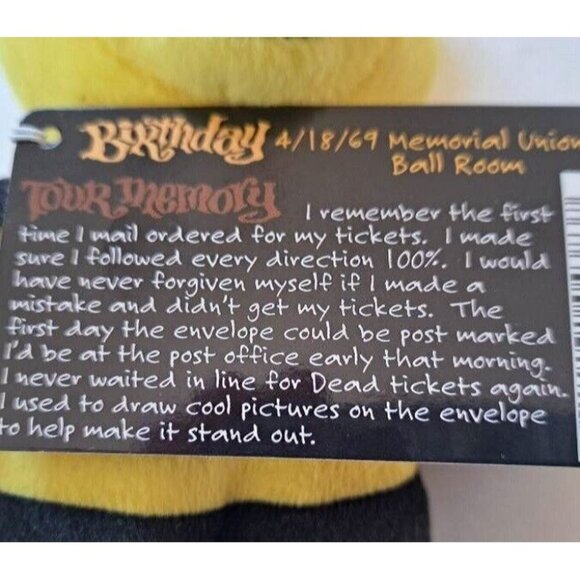 Birthday 4/18/69 Memorial Union
Ball Room
Tour Memory I remember the first
time I mail ordered for my tickets. I made
sure I followed every direction 100%. I would
have never forgiven myself if I made a
mistake and didn't get my tickets. The
first day the envelope could be post marked
I'd be at the post office early that morning.
I never waited in line for Dead tickets again.
I used to draw cool pictures on the envelope
to help make it stand out.